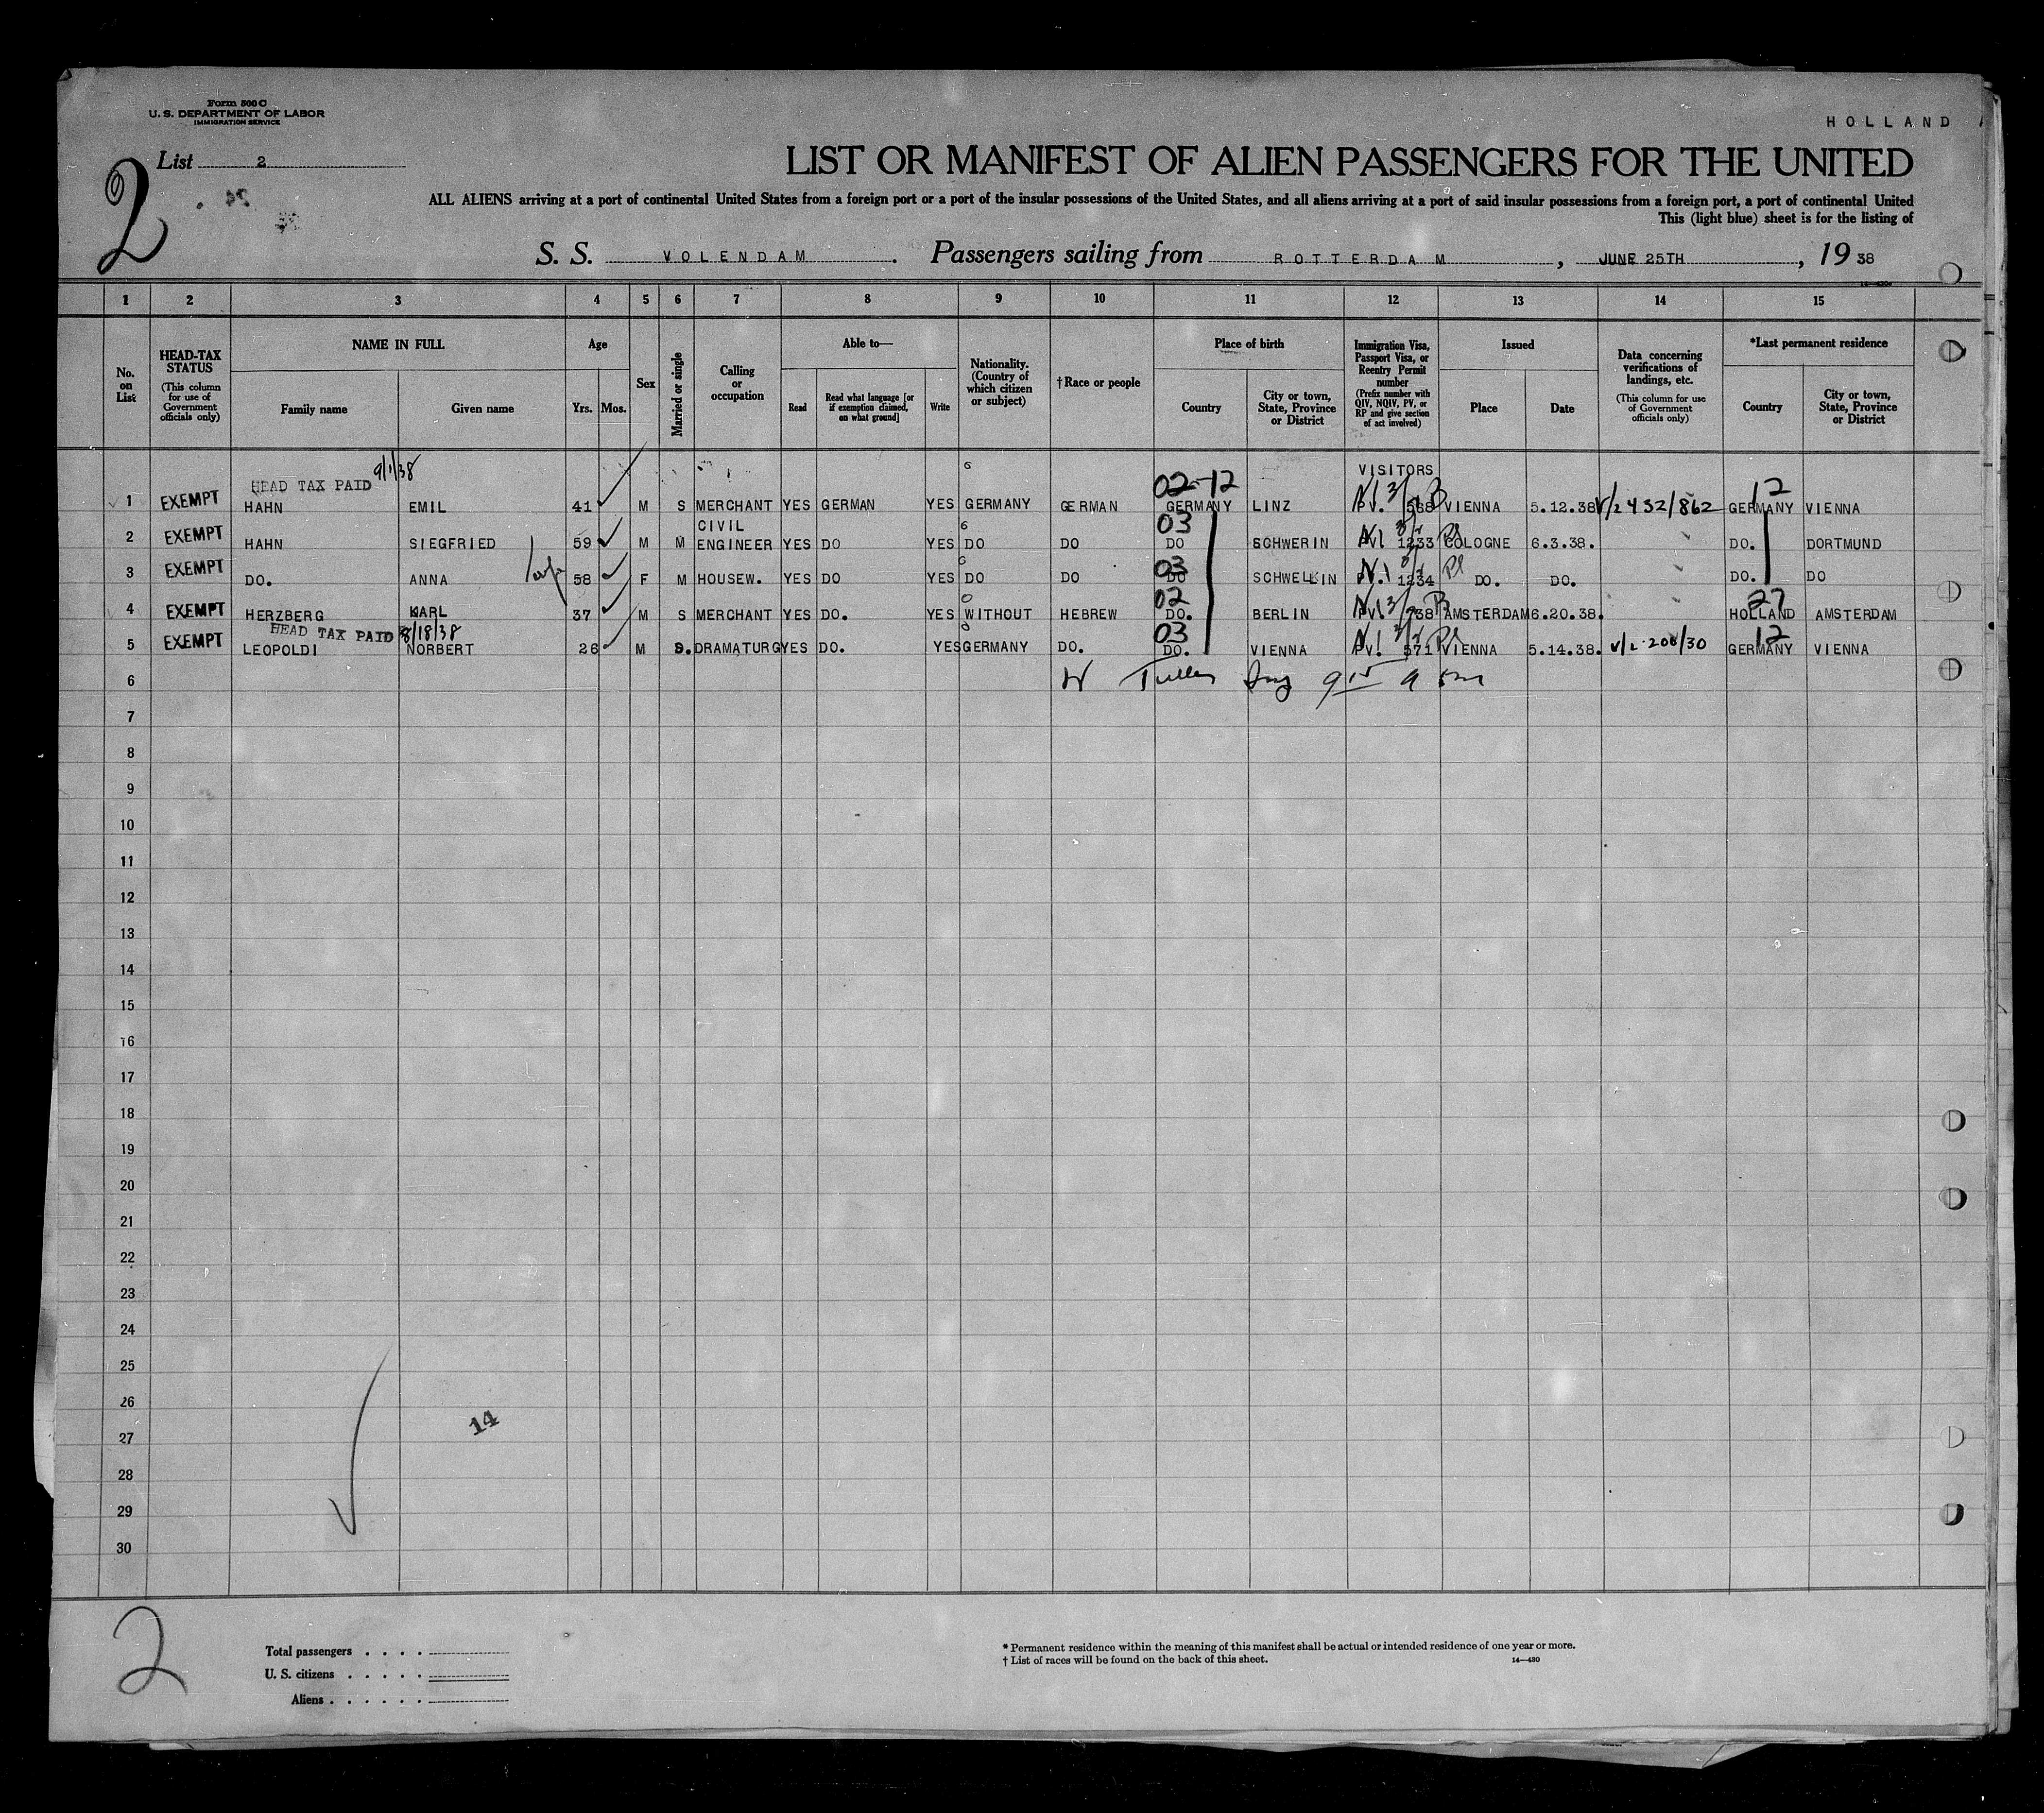 Form 500 C
U. S. DEPARTMENT OF LABOR
IMMIGRATION SERVICE
HOLLAND
List 2
2
LIST OR MANIFEST OF ALIEN PASSENGERS FOR THE UNITED
ALL ALIENS arriving at a port of continental United States from a foreign port or a port of the insular possessions of the United States, and all aliens arriving at a port of said insular possessions from a foreign port, a port of continental United
This (light blue) sheet is for the listing of
S. S. VOLENDAM. Passengers sailing from ROTTERDAM, JUNE 25TH, 19 38
1 2 3 4 5 6 7 8 9 10 11 12 13 14 15
No. on List
HEAD-TAX STATUS (This column for use of Government officials only)
NAME IN FULL
Family name
Given name
Age
Yrs. Mos.
Sex
Married or single
Calling or occupation
Able to—
Read
Read what language [or if exemption claimed, on what ground]
Write
Nationality. (Country of which citizen or subject)
†Race or people
Place of birth
Country
City or town, State, Province or District
Immigration Visa, Passport Visa, or Reentry Permit number (Prefix number with QIV, NQIV, PV, or RP and give section of act involved)
Issued
Place
Date
Data concerning verifications of landings, etc. (This column for use of Government officials only)
*Last permanent residence
Country
City or town, State, Province or District
HEAD TAX PAID 9/1/38
VISITORS
02-12
12
1 EXEMPT HAHN EMIL 41 M S MERCHANT YES GERMAN YES GERMANY GERMAN GERMANY LINZ PV. 568 VIENNA 5.12.38 V/2 432/862 GERMANY VIENNA
03
2 EXEMPT HAHN SIEGFRIED 59 M M CIVIL ENGINEER YES DO YES DO DO DO SCHWERIN PV. 1233 COLOGNE 6.3.38. DO. DORTMUND
03
3 EXEMPT DO. ANNA 58 F M HOUSEW. YES DO YES DO DO DO SCHWELLIN PV. 1234 DO. DO. DO. DO
02
27
4 EXEMPT HERZBERG KARL 37 M S MERCHANT YES DO. YES WITHOUT HEBREW DO. BERLIN PV. 938 AMSTERDAM 6.20.38. HOLLAND AMSTERDAM
HEAD TAX PAID 8/18/38
03
12
5 EXEMPT LEOPOLDI NORBERT 26 M S. DRAMATURG YES DO. YES GERMANY DO. DO. VIENNA PV. 571 VIENNA 5.14.38. V/2-200/30 GERMANY VIENNA
6
7
8
9
10
11
12
13
14
15
16
17
18
19
20
21
22
23
24
25
26
27
28
29
30
14
2
Total passengers . . . .
U. S. citizens . . . . .
Aliens . . . . . .
* Permanent residence within the meaning of this manifest shall be actual or intended residence of one year or more.
† List of races will be found on the back of this sheet.
14—430